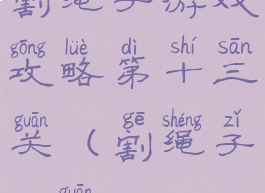 割绳子游戏
gōng lüè dì shí sān
攻略第十三
guān gē shéng zǐ
关（割绳子
guān